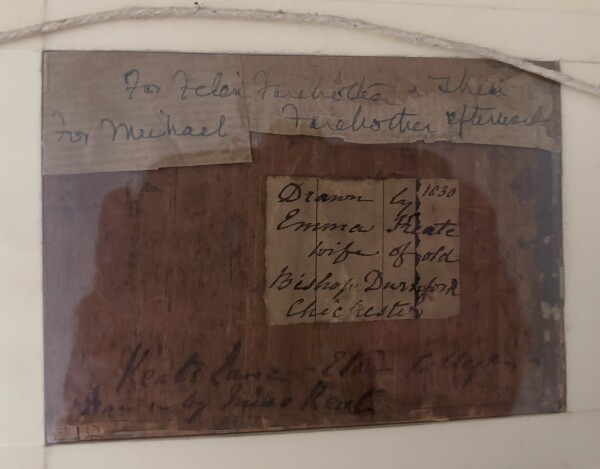 For Felai Farebother & Their
For Michael Farebother afterwards
Drawn by 1830
Emma Keate
wife of old
Bishop Durnford
Chichester
Keats Lane – Eton College
Drawn by Miss Keate